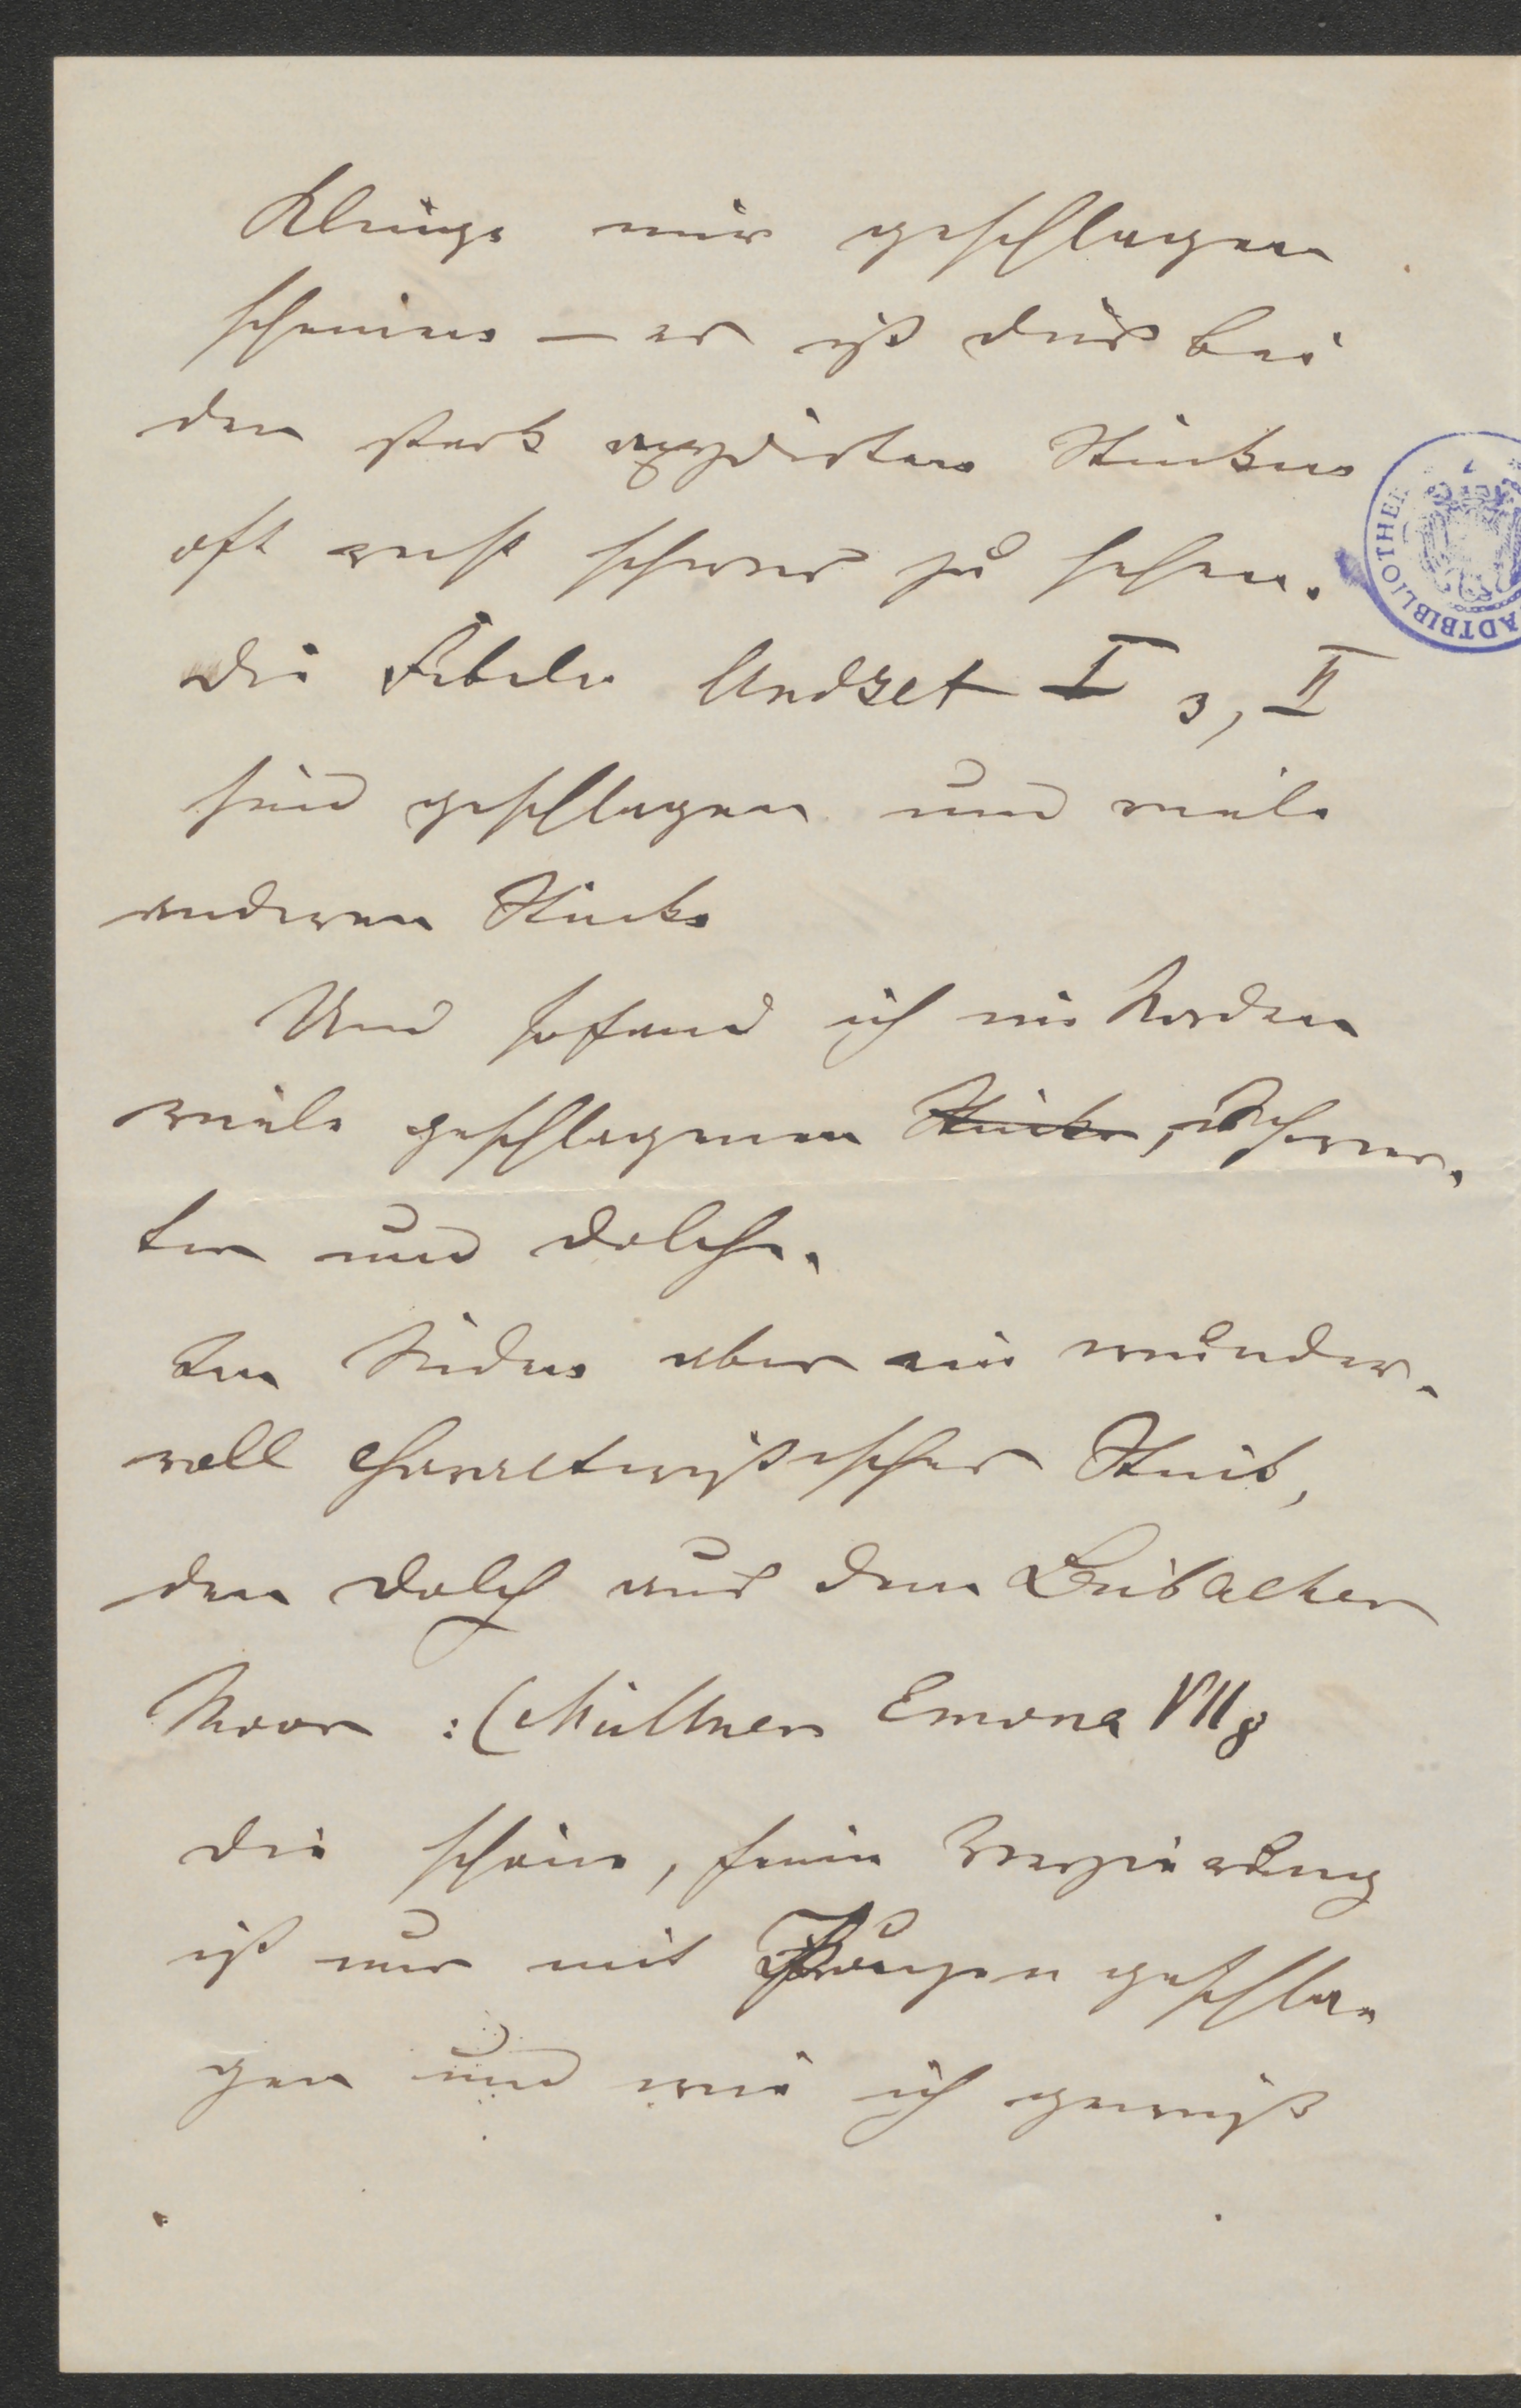 Klinge mir geschlagen
scheinen — es ist dies bei
den stark oxydirten Stücken
oft recht schwer zu sehen.
Die Fibeln Undset I 3, II
sind geschlagen und viele
anderen Stücke
Und so fand ich im Norden
viele geschlagenen Stücke, Schwer-
ter und Dolche.
Im Süden aber ein wunder-
voll charactristischer Stück,
den Dolch aus dem Laibacher
Moor :(Müllner Emona VII 8
die schöne, feine Verzierung
ist nur mit Punzen geschla-
gen und wie ich gewiß
STADTBIBLIOTHEK